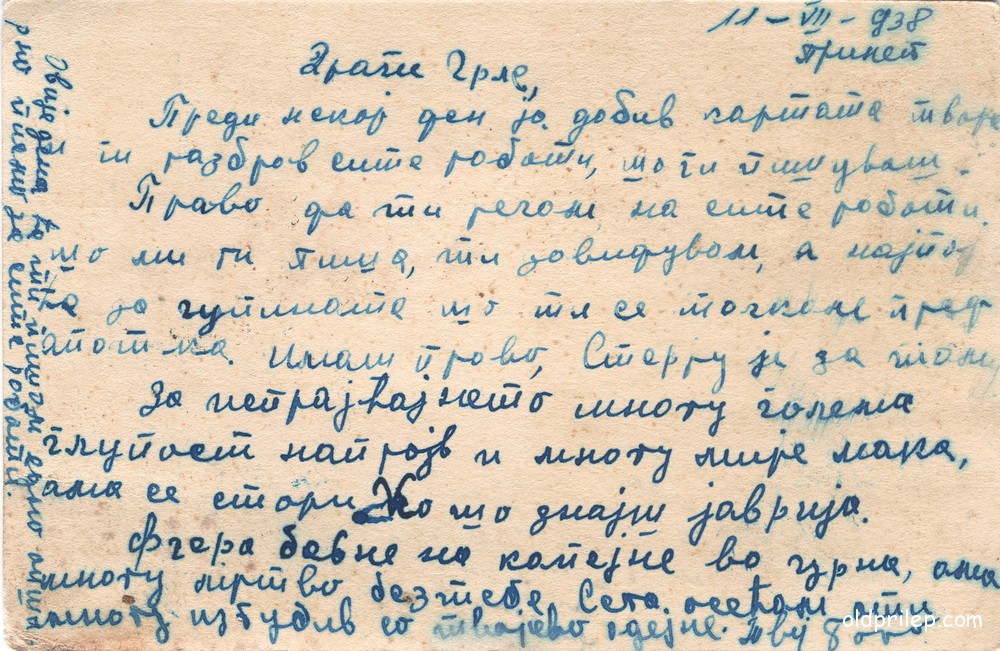 11 - VII - 938
Прилеп
Драги Грле,
Преди некој ден ја добив картата твоја
и ги разбров сите работи, што ги пишуваш.
Право да ти речам, на сите работи,
што ми ги пиша, ти завидувам, а најпо
за
што ти се
пред
Имаш право, Стерју је за
За испраќајнето многу голема
глупост напројв и многу ми је мака,
ама се стори. Ко што знајш јаврија.
Фчера бевне на капејне во Црна, ама
многу мртво без тебе. Сега осеќам оти
многу изгубив со твојево одејне. Твој
Овије дена ќе ти пишам едно опши-
рно писмо за сите работи.
oldprilep.com